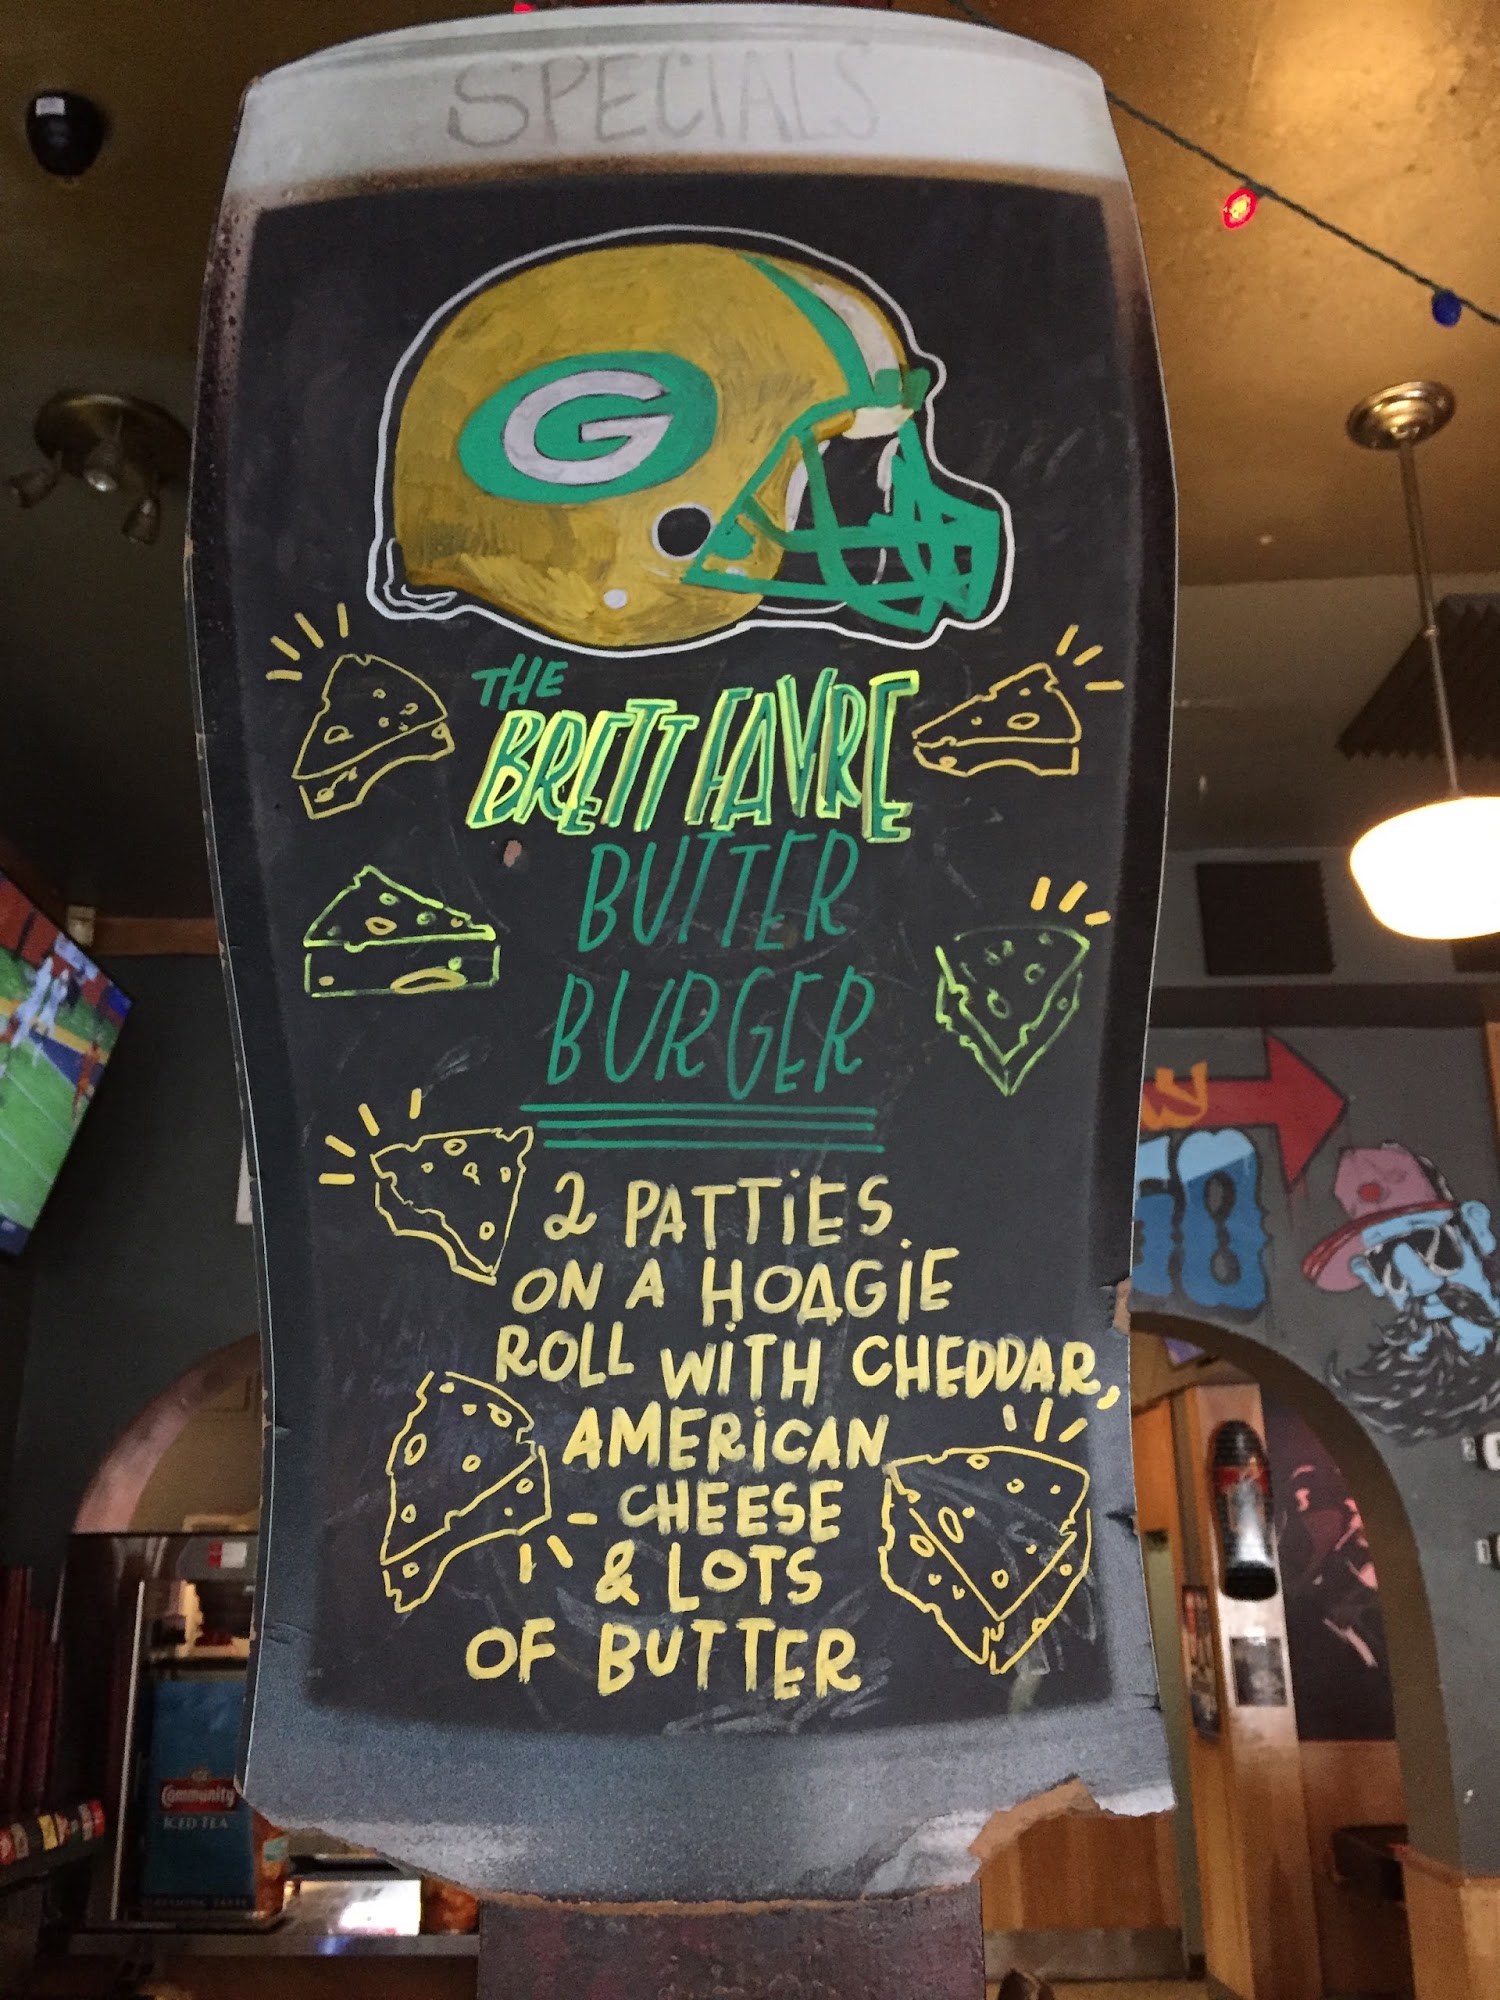 SPECIALS
G
THE
BRETT FAVRE
BUTTER
BURGER
2 PATTIES
ON A HOAGIE
ROLL WITH CHEDDAR,
AMERICAN
CHEESE
& LOTS
OF BUTTER
Community
ICED TEA